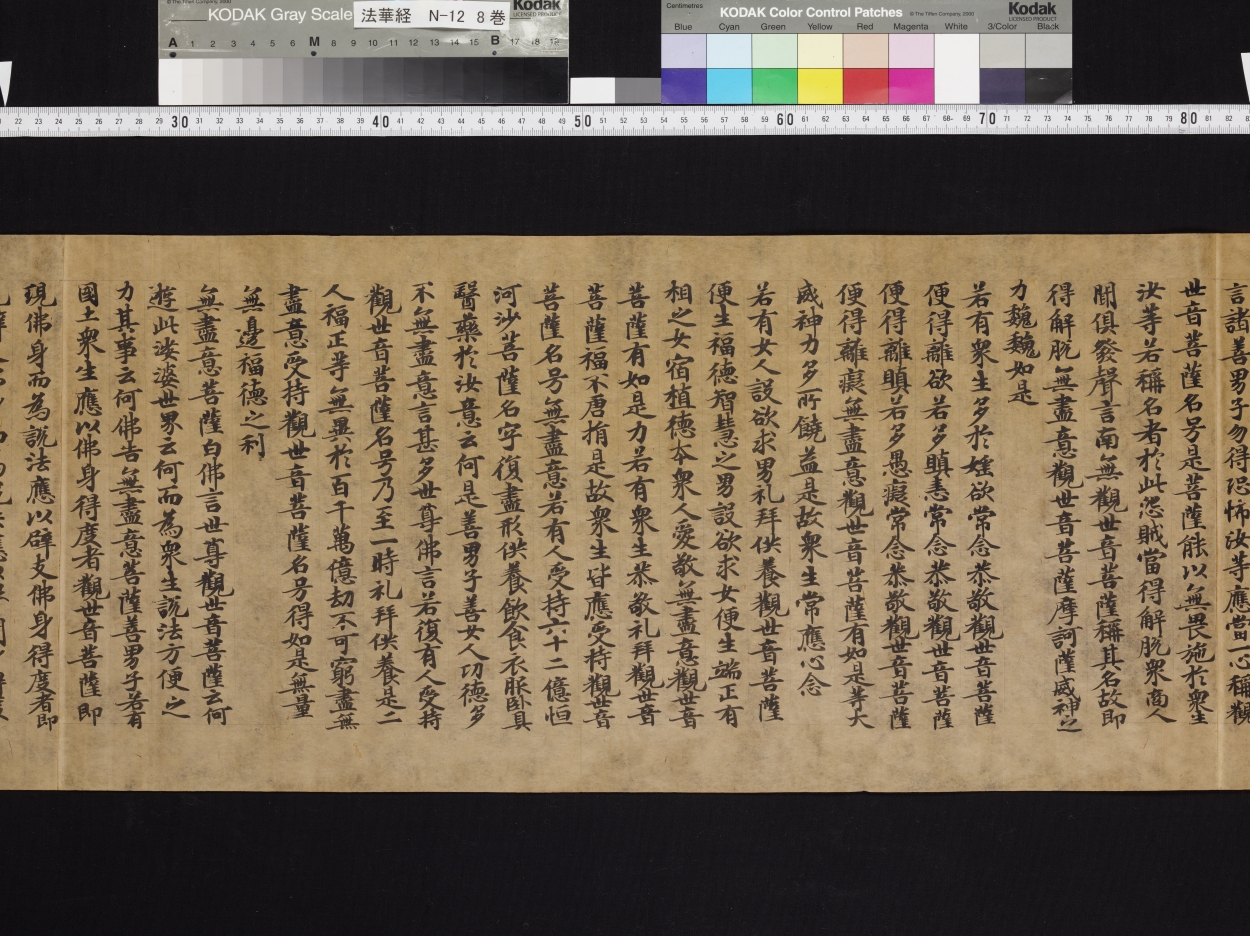 © The Tiffen Company, 2000
KODAK Gray Scale
法華経 N-12 8巻
Kodak
LICENSED PRODUCT
A 1 2 3 4 5 6 M 8 9 10 11 12 13 14 15 B 17 18 19
Centimetres
KODAK Color Control Patches
© The Tiffen Company, 2000
Kodak
LICENSED PRODUCT
Blue Cyan Green Yellow Red Magenta White 3/Color Black
22 23 24 25 26 27 28 29 30 31 32 33 34 35 36 37 38 39 40 41 42 43 44 45 46 47 48 49 50 51 52 53 54 55 56 57 58 59 60 61 62 63 64 65 66 67 68 69 70 71 72 73 74 75 76 77 78 79 80 81 82
言諸善男子勿得恐怖汝等應當一心稱觀
世音菩薩名号是菩薩能以無畏施於衆生
汝等若稱名者於此怨賊當得解脱衆商人
聞俱發聲言南無觀世音菩薩稱其名故即
得解脱無盡意觀世音菩薩摩訶薩威神之
力巍巍如是
若有衆生多於婬欲常念恭敬觀世音菩薩
便得離欲若多瞋恚常念恭敬觀世音菩薩
便得離瞋若多愚癡常念恭敬觀世音菩薩
便得離癡無盡意觀世音菩薩有如是等大
威神力多所饒益是故衆生常應心念
若有女人設欲求男礼拜供養觀世音菩薩
便生福德智慧之男設欲求女便生端正有
相之女宿植德本衆人愛敬無盡意觀世音
菩薩有如是力若有衆生恭敬礼拜觀世音
菩薩福不唐捐是故衆生皆應受持觀世音
菩薩名号無盡意若有人受持六十二億恒
河沙菩薩名字復盡形供養飲食衣服卧具
醫藥於汝意云何是善男子善女人功德多
不無盡意言甚多世尊佛言若復有人受持
觀世音菩薩名号乃至一時礼拜供養是二
人福正等無異於百千萬億劫不可窮盡無
盡意受持觀世音菩薩名号得如是無量
無邊福德之利
無盡意菩薩白佛言世尊觀世音菩薩云何
遊此娑婆世界云何而為衆生説法方便之
力其事云何佛告無盡意菩薩善男子若有
國土衆生應以佛身得度者觀世音菩薩即
現佛身而為説法應以辟支佛身得度者即